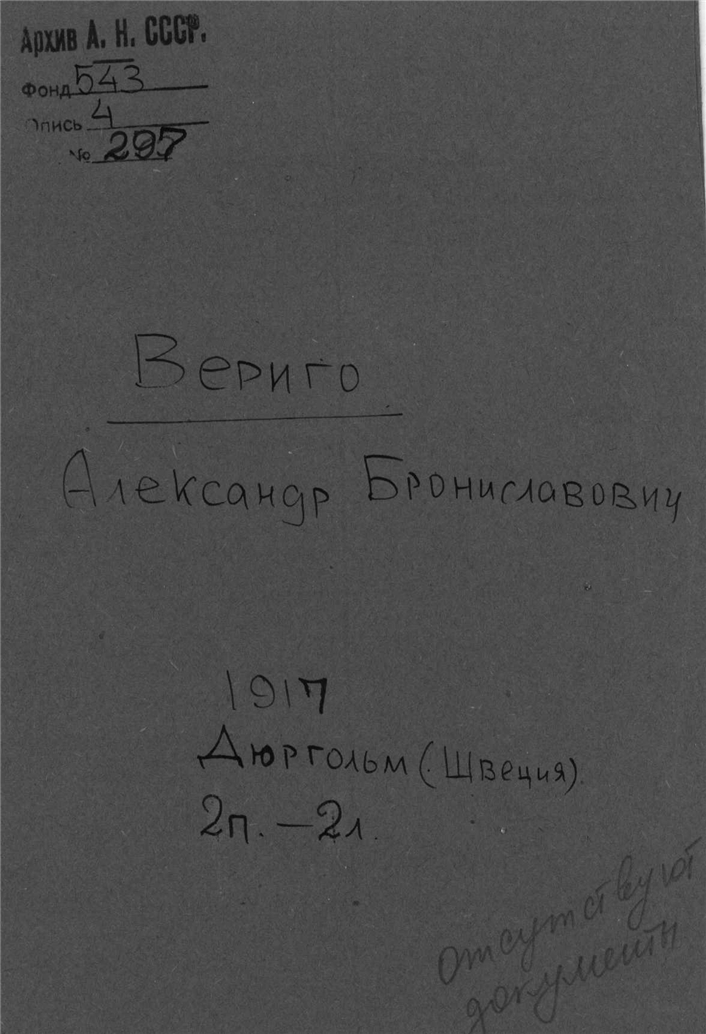 Архив А. Н. СССР.
Фонд 543
Опись 4
№ 297
Вериго
Александр Брониславович
1917
Дюргольм (Швеция).
2п. – 2л.
отсутствуют
документы